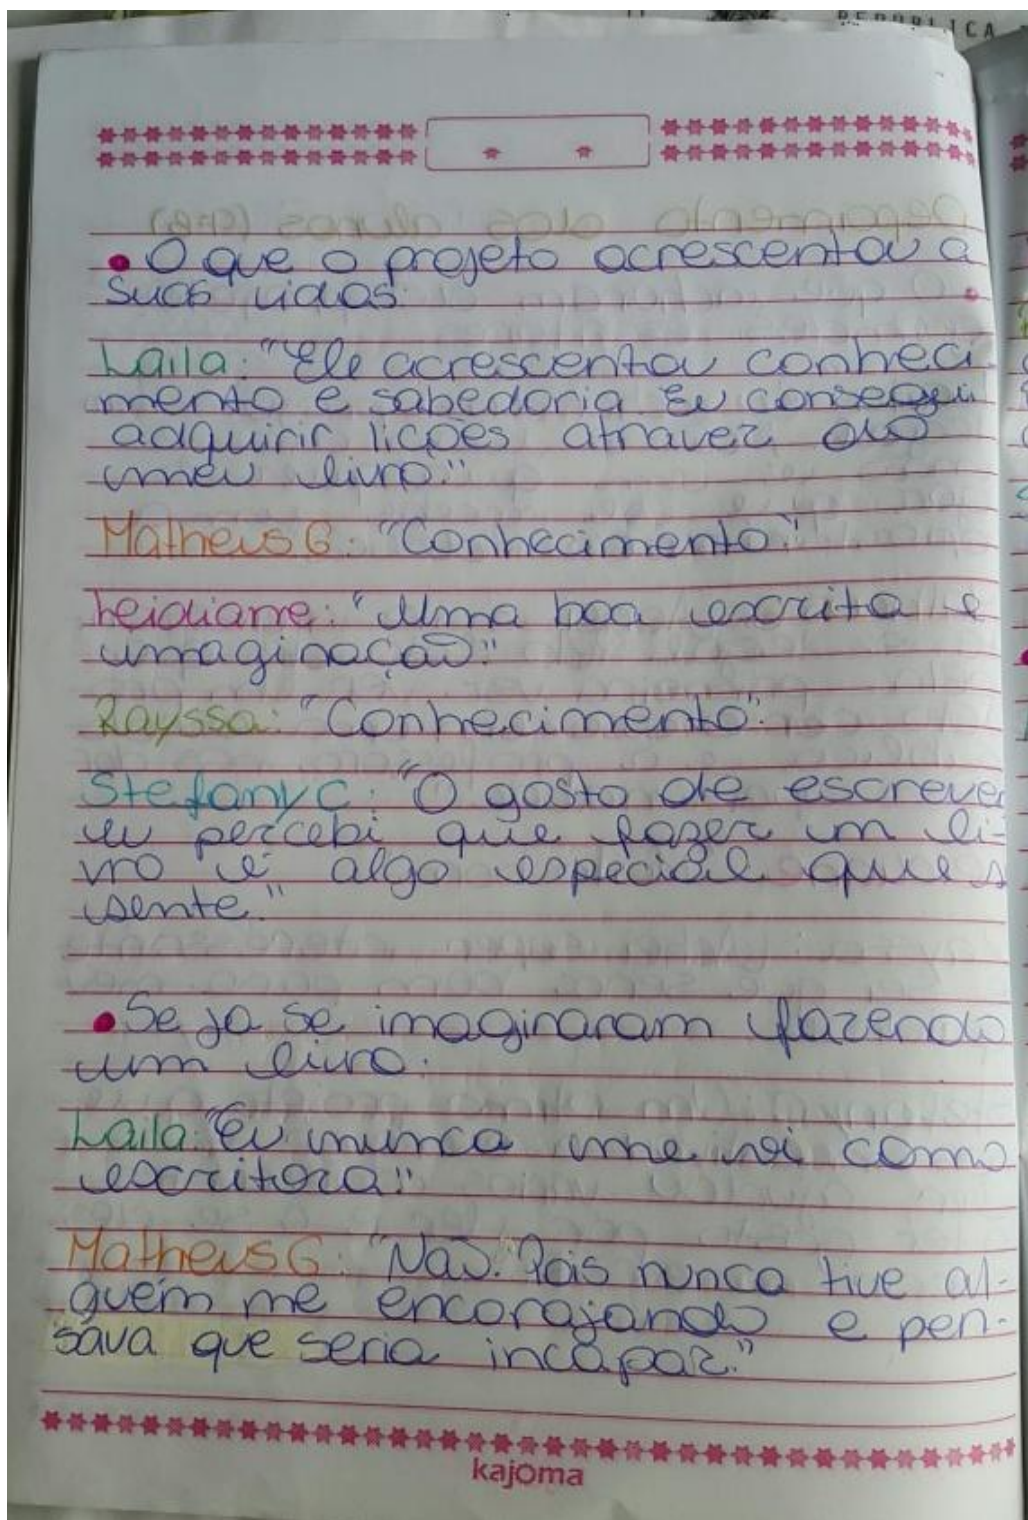 REPÚBLICA
• O que o projeto acrescentou a
suas vidas.
Laila: "Ele acrescentou conheci
mento e sabedoria Eu consegui
adquirir lições atravez do
meu livro."
Matheus G: "Conhecimento."
Leidiane: "Uma boa escrita e
imaginação."
Rayssa: "Conhecimento".
Stefany C: "O gosto de escrever
eu percebi que fazer um li-
vro é algo especial que s
sente."
• Se ja se imaginaram fazendo
um livro.
Laila: "Eu nunca me vi como
escritora."
Matheus G: "Não. Pois nunca tive al-
guém me encorajando e pen-
sava que seria incapaz."
kajoma